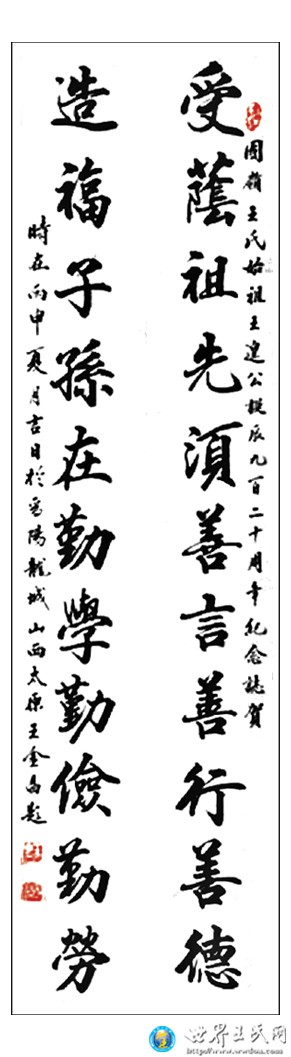 國嶺王氏始祖王建公誕辰九百二十周年紀念誌賀
受蔭祖先須善言善行善德
造福子孫在勤學勤儉勤勞
時在丙申夏月吉日於晉陽龍城山西太原王金為題
世界王氏网
http://www.wwdoa.com